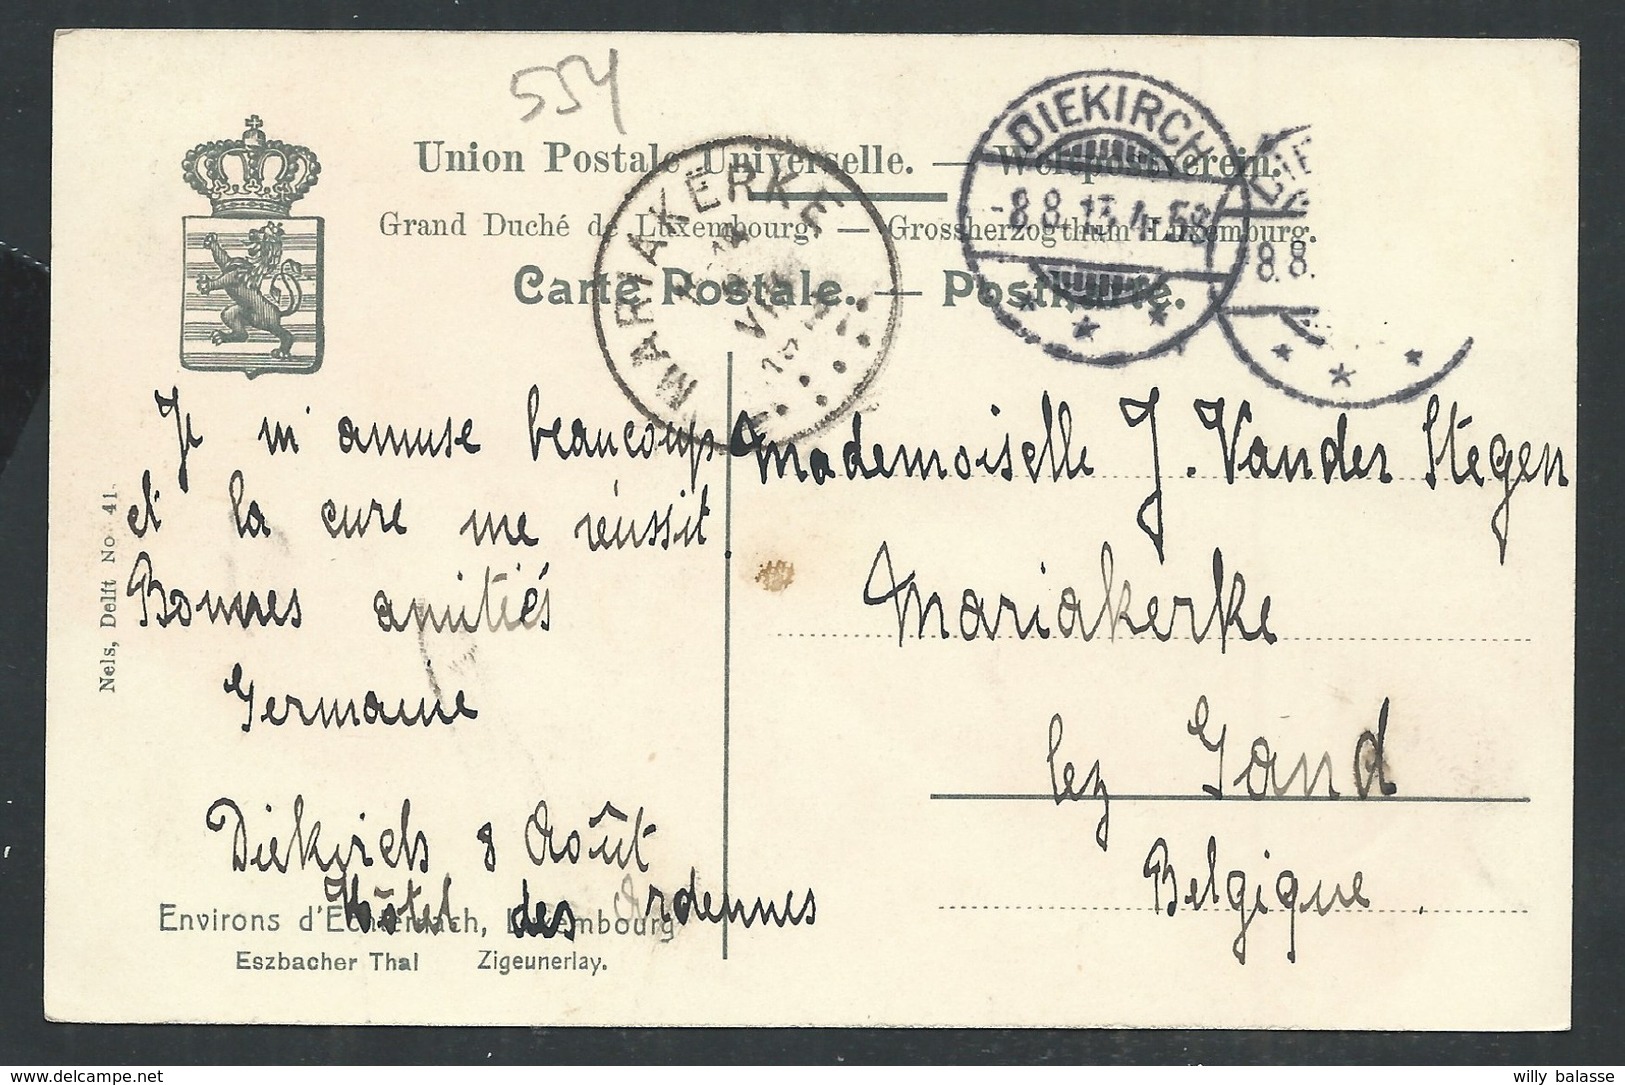 554
Union Postale Universelle. — Weltpostverein.
Grand Duché de Luxembourg. — Grossherzogthum Luxemburg.
Carte Postale. — Postkarte.
MARIAKERKE
DIEKIRCH
-8.8.13. 4-5S
DIE
8.8.
Je m'amuse beaucoup
et la cure me réussit
Bonnes amitiés
Germaine
Diekirch 8 Août
Hôtel des Ardennes
Mademoiselle J. Vander Stegen
Mariakerke
lez Gand
Belgique
Nels, Delft No 41.
Environs d'Echternach, Luxembourg
Eszbacher Thal Zigeunerlay.
delcampe.net
willy balasse